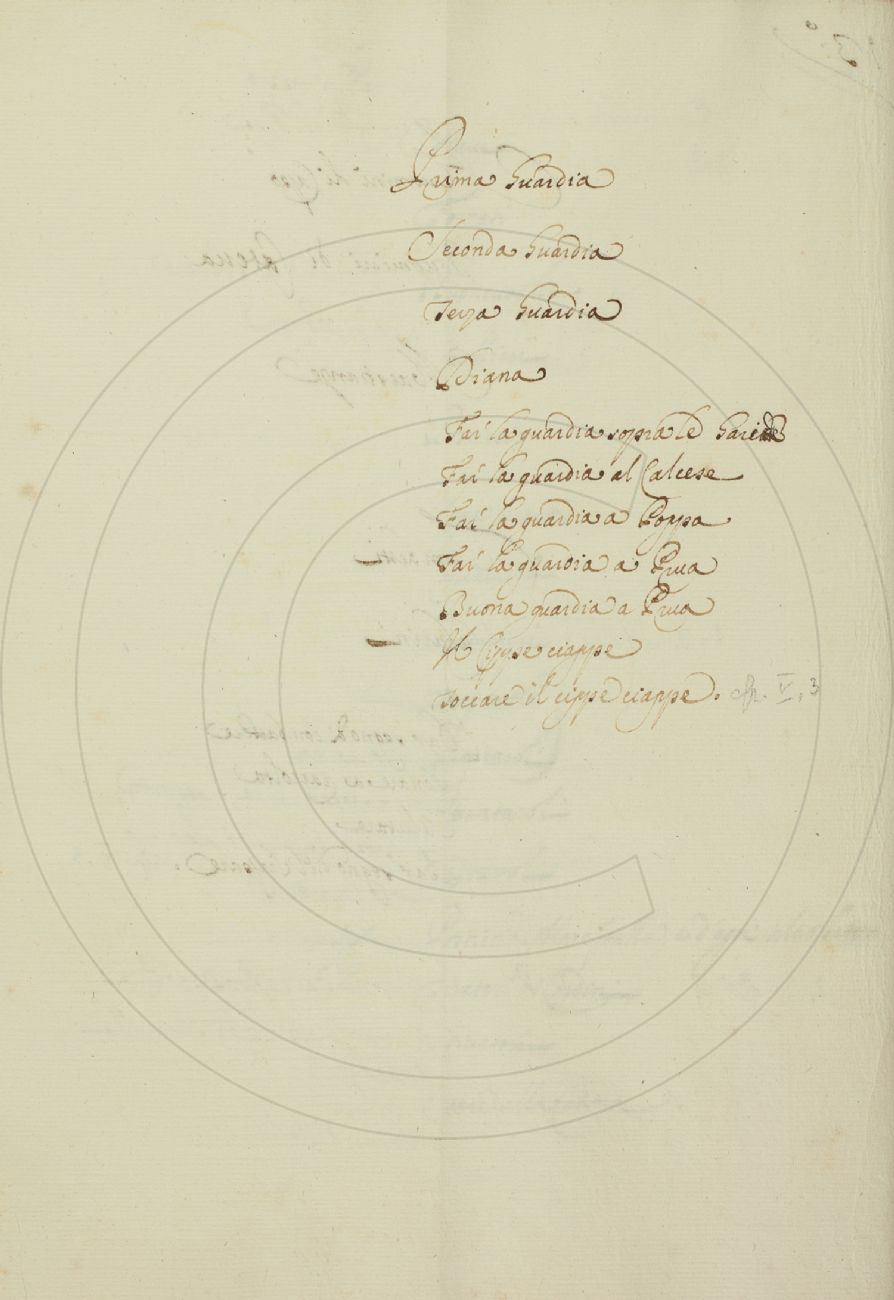 Prima Guardia
Seconda Guardia
Terza Guardia
Diana
Far la guardia sopra le
Far la guardia al Calcese
Far la guardia a Poppa
Far la guardia a Prua
Buona guardia a Prua
Il Cippe ciappe
Toccare il cippe ciappe. cfr. V, 3